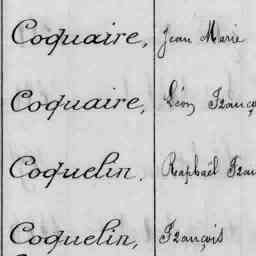 Coquaire, Jean Marie
Coquaire, Léon
Coquelin. Raphaël
Coquelin, François